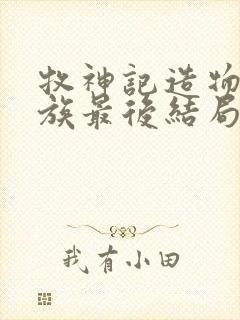 牧神記造物
族最後結局
我有小田